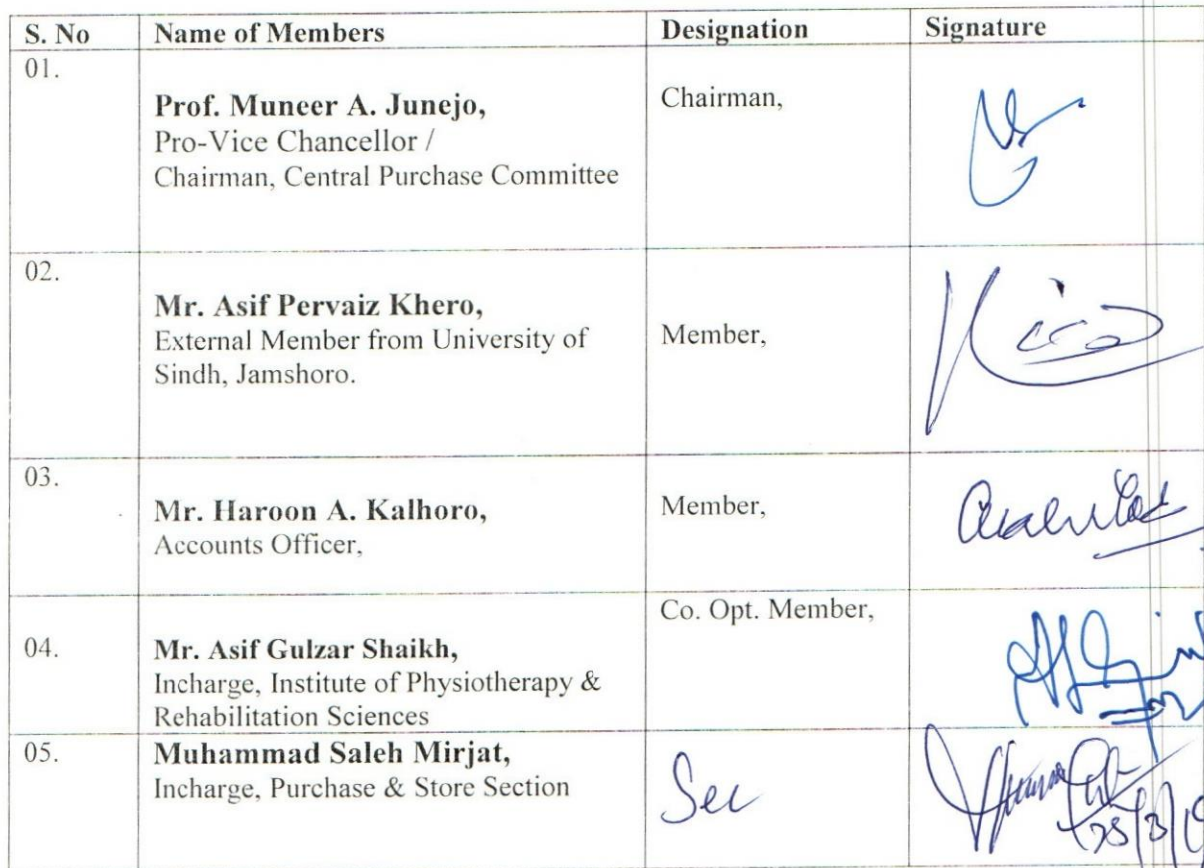 S. No Name of Members Designation Signature
01.
Prof. Muneer A. Junejo, Chairman,
Pro-Vice Chancellor /
Chairman, Central Purchase Committee
02.
Mr. Asif Pervaiz Khero,
External Member from University of Member,
Sindh, Jamshoro.
03.
Mr. Haroon A. Kalhoro, Member,
Accounts Officer,
Co. Opt. Member,
04. Mr. Asif Gulzar Shaikh,
Incharge, Institute of Physiotherapy &
Rehabilitation Sciences
05. Muhammad Saleh Mirjat,
Incharge, Purchase & Store Section Sec